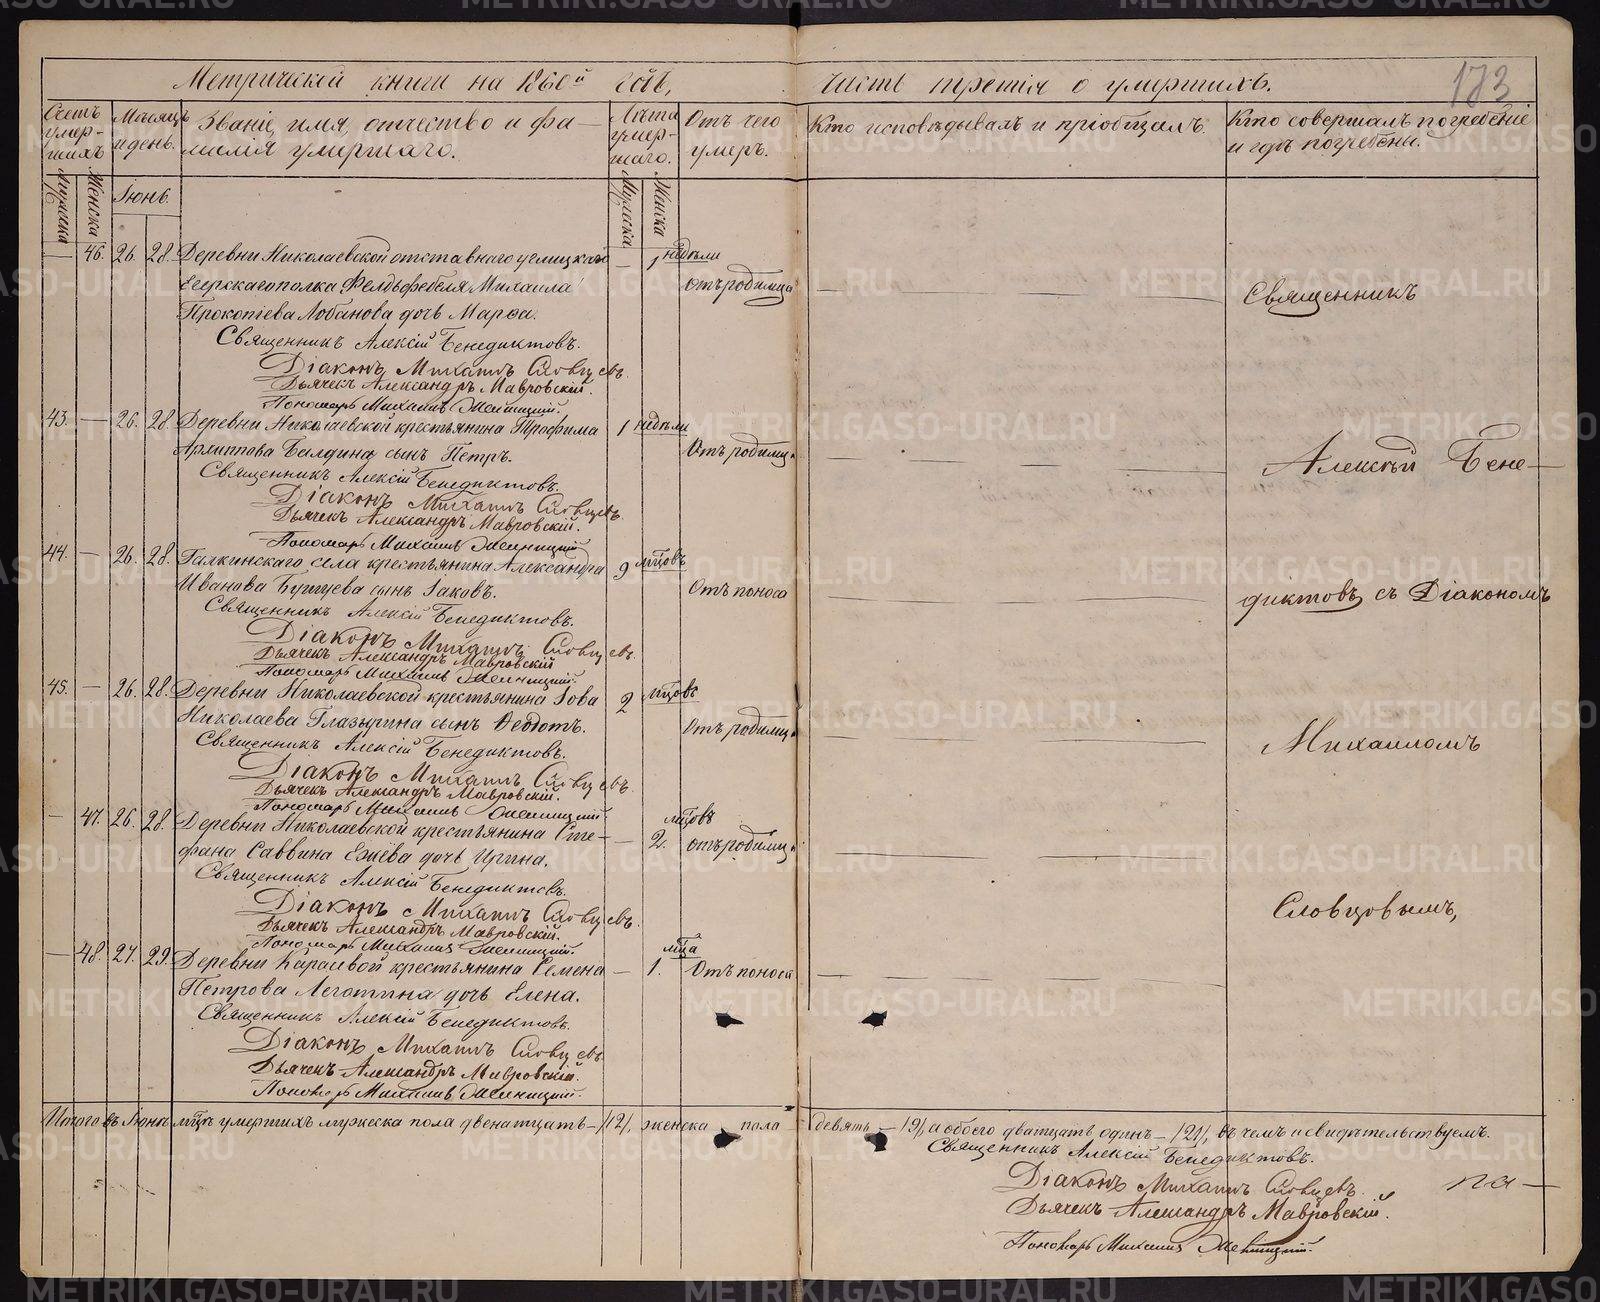 Метрической книги на 1860й годъ, часть третія о умершихъ.
173
Счетъ умершихъ
Мѣсяцъ и день.
Званіе, имя, отчество и фамилія умершаго.
Лѣта умершаго.
Отъ чего умеръ.
Кто исповѣдывалъ и пріобщалъ.
Кто совершалъ погребеніе и гдѣ погребены.
Мужеска
Женска
Іюнь.
Мужеска
Женска
— 46. 26. 28. Деревни Николаевской отставнаго углицкаго — 1 недѣли
Егерскаго полка Фельдфебеля Михаила отъ родимца
Прокопіева Лобанова дочь Марѳа.
Священникъ Алексій Бенедиктовъ.
Діаконъ Михаилъ Словцевъ.
Дьячекъ Александръ Мавровскій.
Пономарь Михаилъ
43. — 26. 28. Деревни Николаевской крестьянина Трофима 1 недѣли
Архиппова Балдина сынъ Петръ. Отъ родимца
Священникъ Алексій Бенедиктовъ.
Діаконъ Михаилъ Словцевъ.
Дьячекъ Александръ Мавровскій.
Пономарь Михаилъ
44. — 26. 28. Галкинскаго села крестьянина Александра 9 мцовъ
Иванова сынъ Іаковъ. Отъ поноса
Священникъ Алексій Бенедиктовъ.
Діаконъ Михаилъ Словцевъ.
Дьячекъ Александръ Мавровскій
Пономарь Михаилъ
45. — 26. 28. Деревни Николаевской крестьянина Іова 2 мцовъ
Николаева Глазырина сынъ Ѳеодотъ. Отъ родимца
Священникъ Алексій Бенедиктовъ.
Діаконъ Михаилъ Словцевъ.
Дьячекъ Александръ Мавровскій.
Пономарь Михаилъ
— 47. 26. 28. Деревни Николаевской крестьянина Сте— — 2. мцовъ
фана Саввина дочь Ирина. отъ родимца
Священникъ Алексій Бенедиктовъ.
Діаконъ Михаилъ Словцевъ.
Дьячекъ Александръ Мавровскій.
Пономарь Михаилъ
— 48. 27. 29. Деревни Карасевой крестьянина Семена — 1. мца Отъ поноса
Петрова Леготина дочь Елена.
Священникъ Алексій Бенедиктовъ.
Діаконъ Михаилъ Словцевъ
Дьячекъ Александръ Мавровскій.
Пономарь Михаилъ
Священникъ
Алексѣй Бене—
диктовъ съ Діакономъ
Михаиломъ
Словцовымъ,
Итого въ Іюнѣ мцѣ умершихъ мужеска пола двенатцать — /12/, женска пола девять — /9/, а обоего дватцать одинъ — /21/, въ чемъ и свидѣтельствуемъ.
Священникъ Алексій Бенедиктовъ.
Діаконъ Михаилъ Словцевъ.
на —
Дьячекъ Александръ Мавровскій.
Пономарь Михаилъ
METRIKI.GASO-URAL.RU